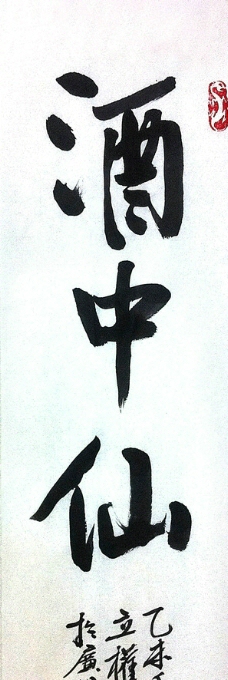 酒中仙
乙未
立權
於廣